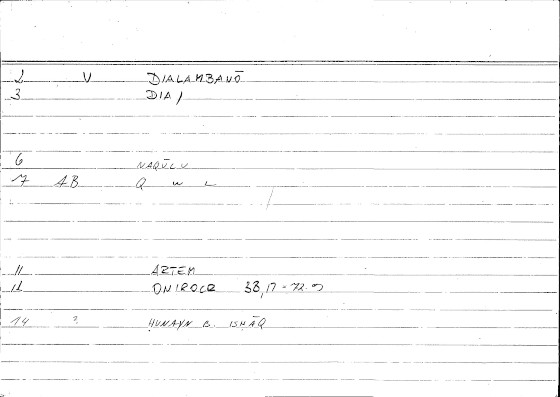 2 V DIALAMBANŌ
3 DIA/
6 NAQŪLU
7 AB Q W L
11 ARTEM
12 ONIROCR 38,17-72.9
14 ? HUNAYN B. ISHĀQ